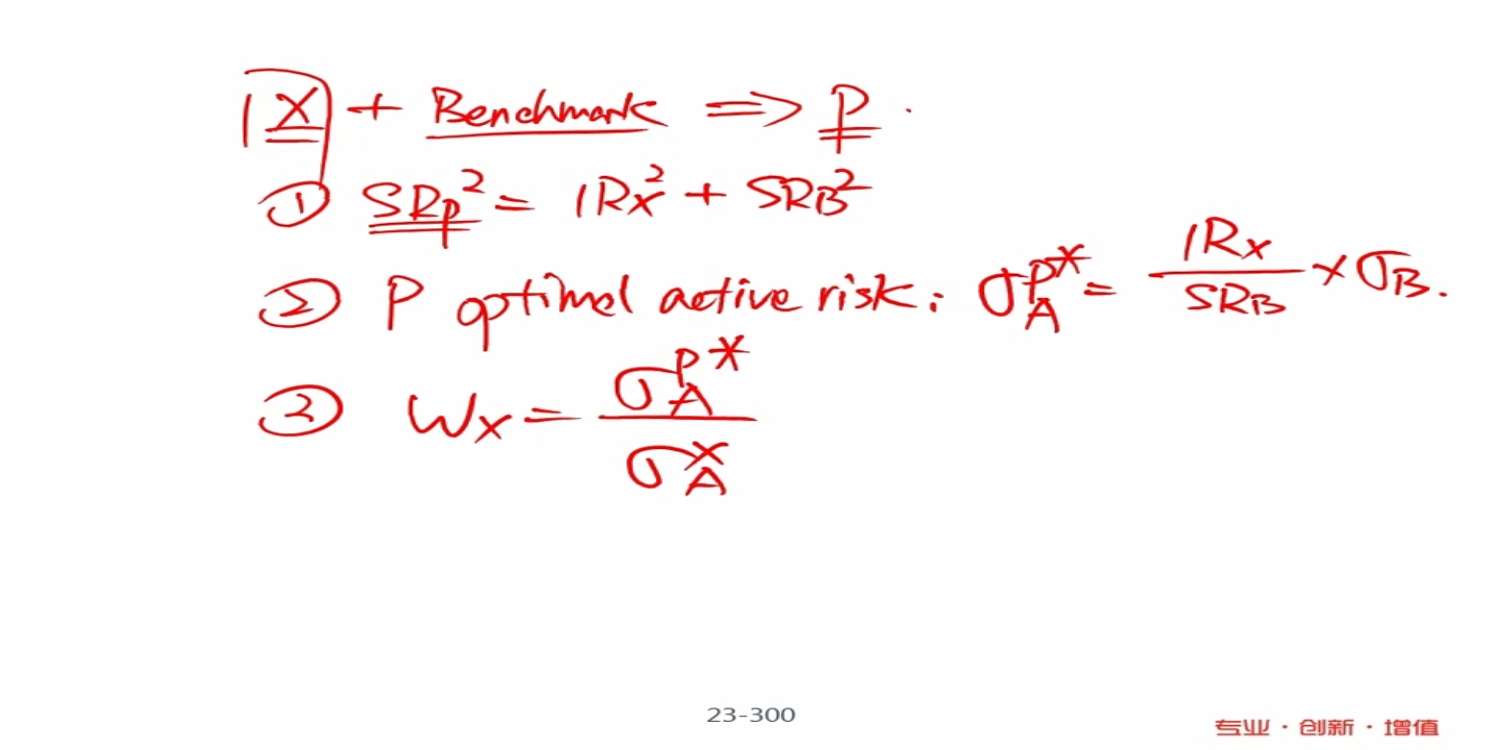 X + Benchmark ⇒ P.
① SRp² = IRx² + SRB²
② P optimal active risk: σ_A^P* = IRx / SRB × σB.
② Wx = σ_A^P* / σ_A^X
23-300
专业·创新·增值